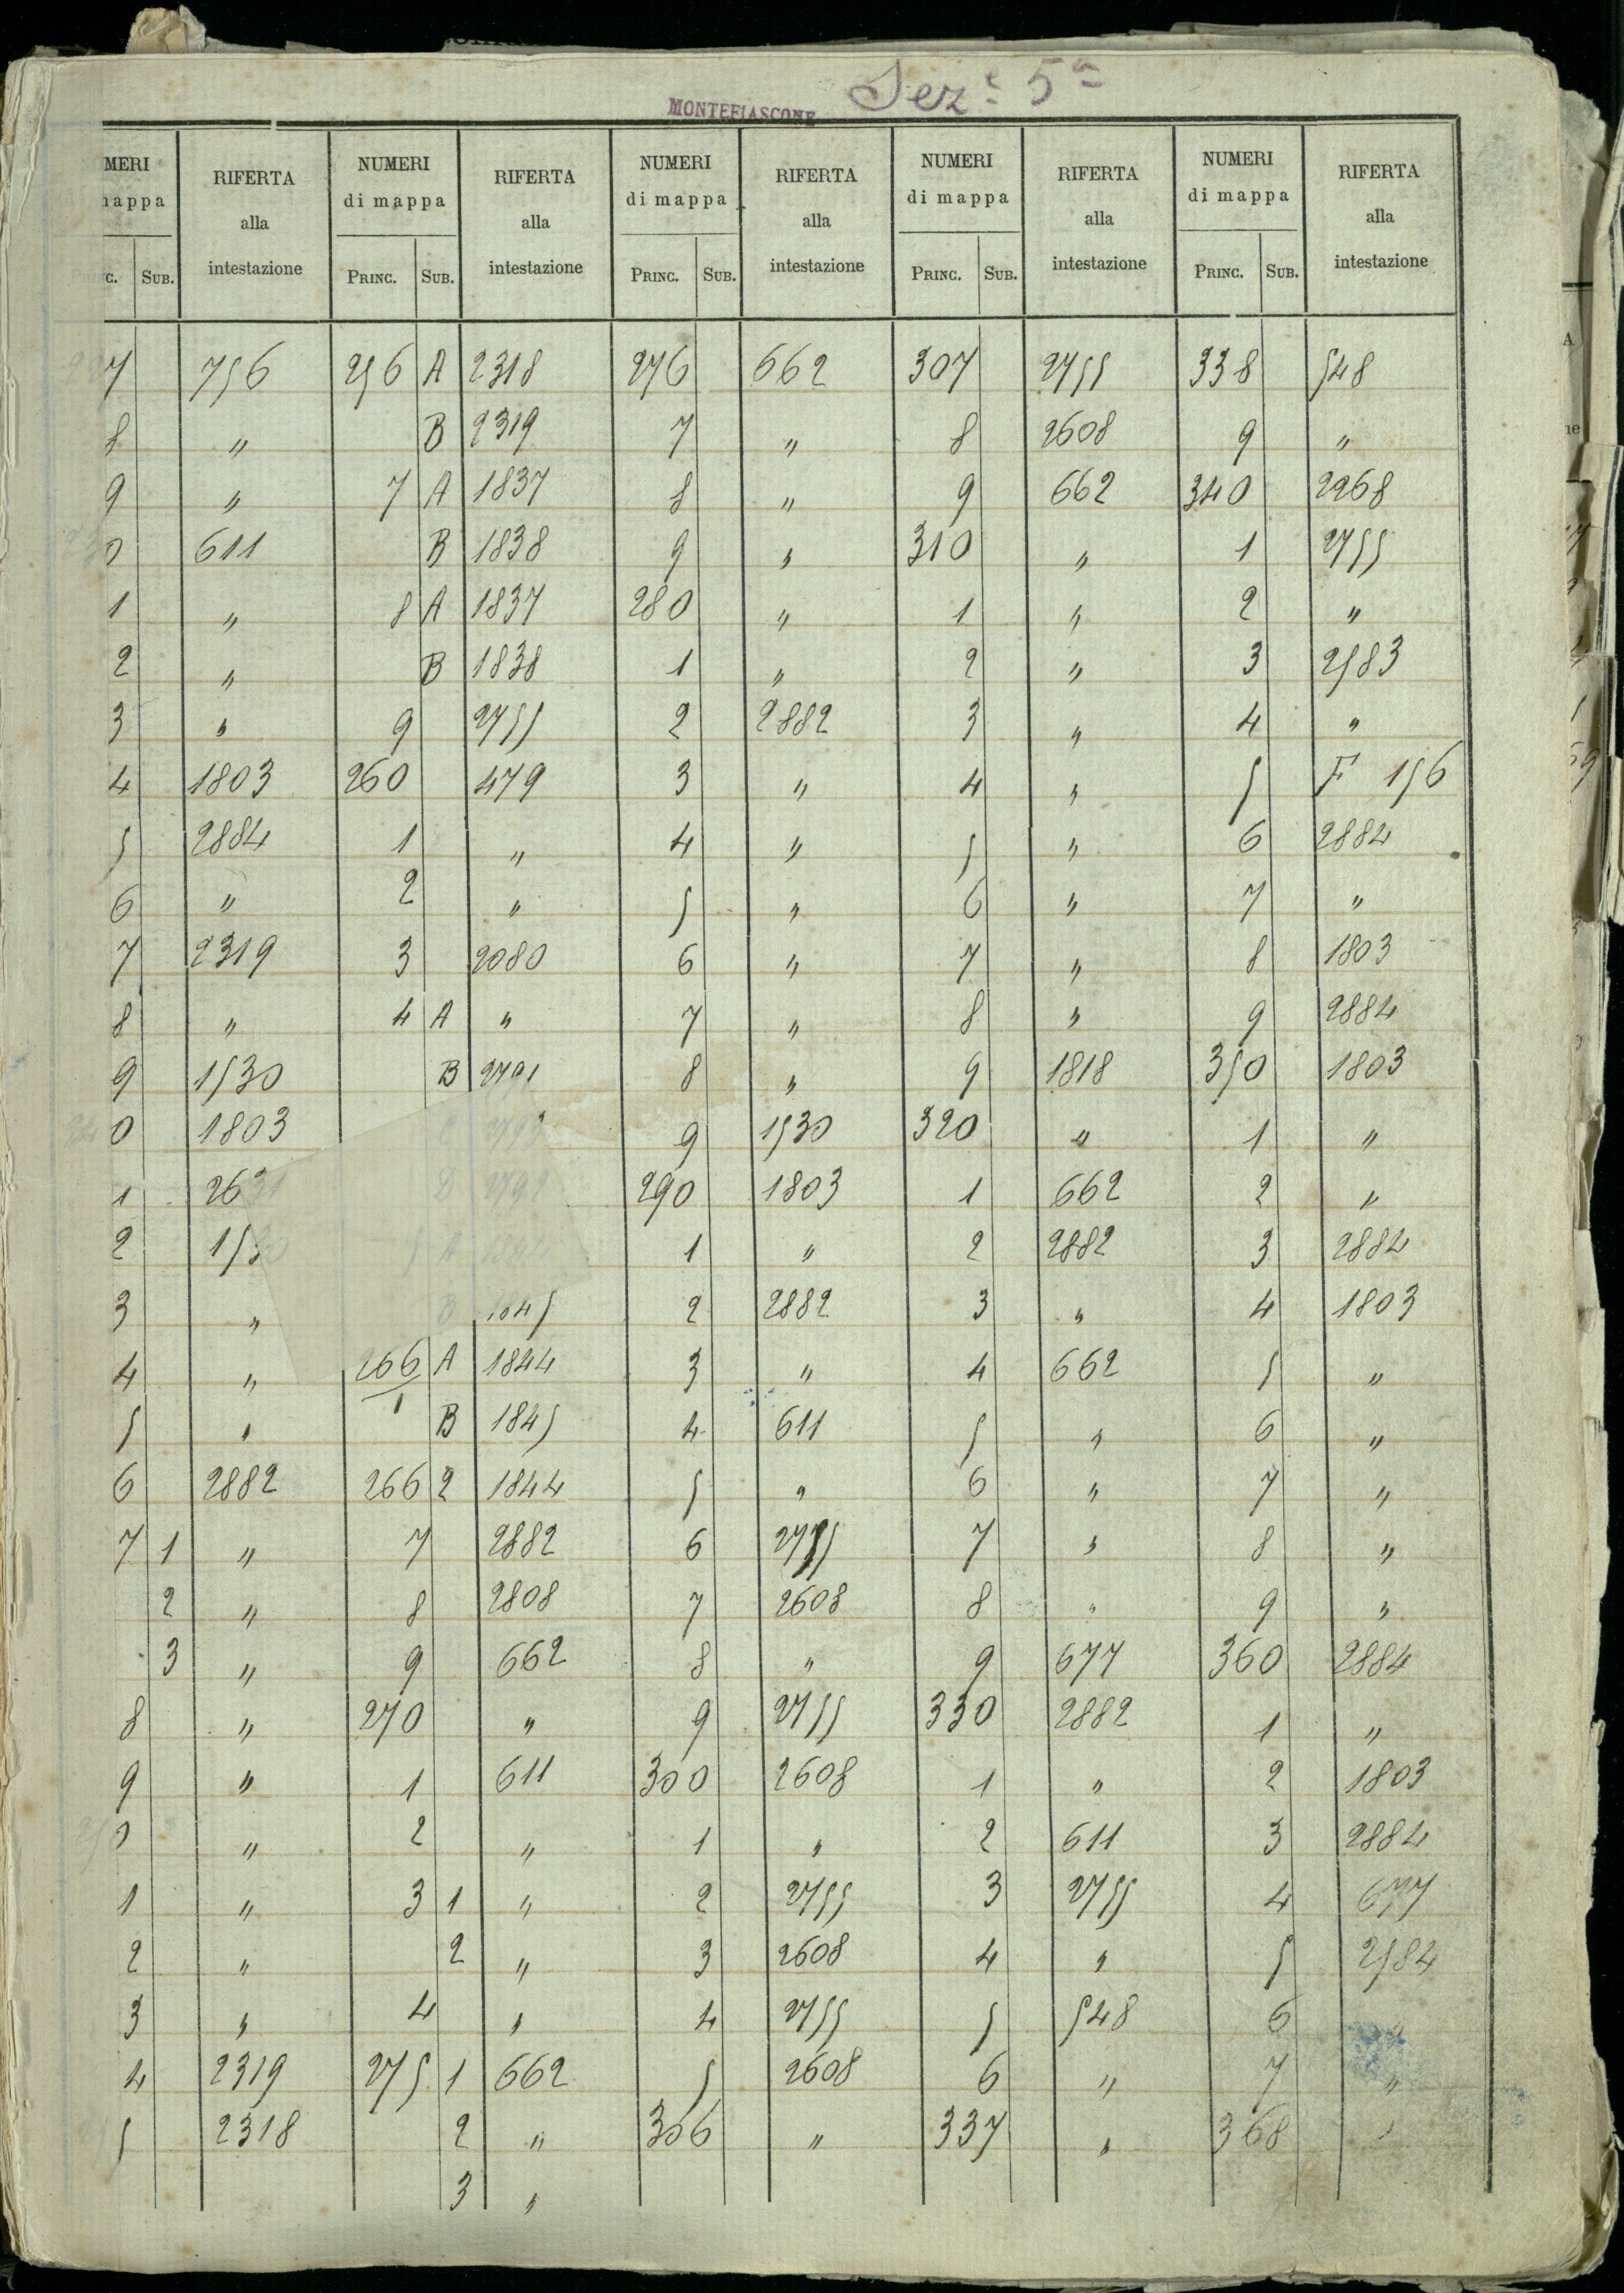 MONTEFIASCONE Sezᵉ 5ᵃ
MERI RIFERTA NUMERI RIFERTA NUMERI RIFERTA NUMERI RIFERTA NUMERI RIFERTA
mappa alla di mappa alla di mappa alla di mappa alla di mappa alla
Princ. Sub. intestazione Princ. Sub. intestazione Princ. Sub. intestazione Princ. Sub. intestazione Princ. Sub. intestazione
227 756 256 A 2318 276 662 307 2755 338 548
8 " B 2319 7 " 8 2608 9 "
9 " 7 A 1837 8 " 9 662 340 2268
230 611 B 1838 9 " 310 " 1 2755
1 " 8 A 1837 280 " 1 " 2 "
2 " B 1838 1 " 2 " 3 2583
3 " 9 2755 2 2882 3 " 4 "
4 1803 260 479 3 " 4 " 5 F 156
5 2884 1 " 4 " 5 " 6 2884
6 " 2 " 5 " 6 " 7 "
7 2319 3 2080 6 " 7 " 8 1803
8 " 4 A " 7 " 8 " 9 2884
9 1530 B 2791 8 " 9 1818 350 1803
240 1803 C 9 1530 320 " 1 "
1 2631 D 2792 290 1803 1 662 2 "
2 1530 5 A 1 " 2 2882 3 2884
3 " B 1845 2 2882 3 " 4 1803
4 " 266/1 A 1844 3 " 4 662 5 "
5 " B 1845 4 611 5 " 6 "
6 2882 266 2 1844 5 " 6 " 7 "
7 1 " 7 2882 6 2755 7 " 8 "
2 " 8 2808 7 2608 8 " 9 "
3 " 9 662 8 " 9 677 360 2884
8 " 270 " 9 2755 330 2882 1 "
9 " 1 611 300 2608 1 " 2 1803
250 " 2 " 1 " 2 611 3 2884
1 " 3 1 " 2 2755 3 2755 4 677
2 " 2 " 3 2608 4 " 5 2584
3 " 4 " 4 2755 5 548 6 "
4 2319 275 1 662 5 2608 6 " 7 "
5 2318 2 " 306 " 337 " 368 "
3 "